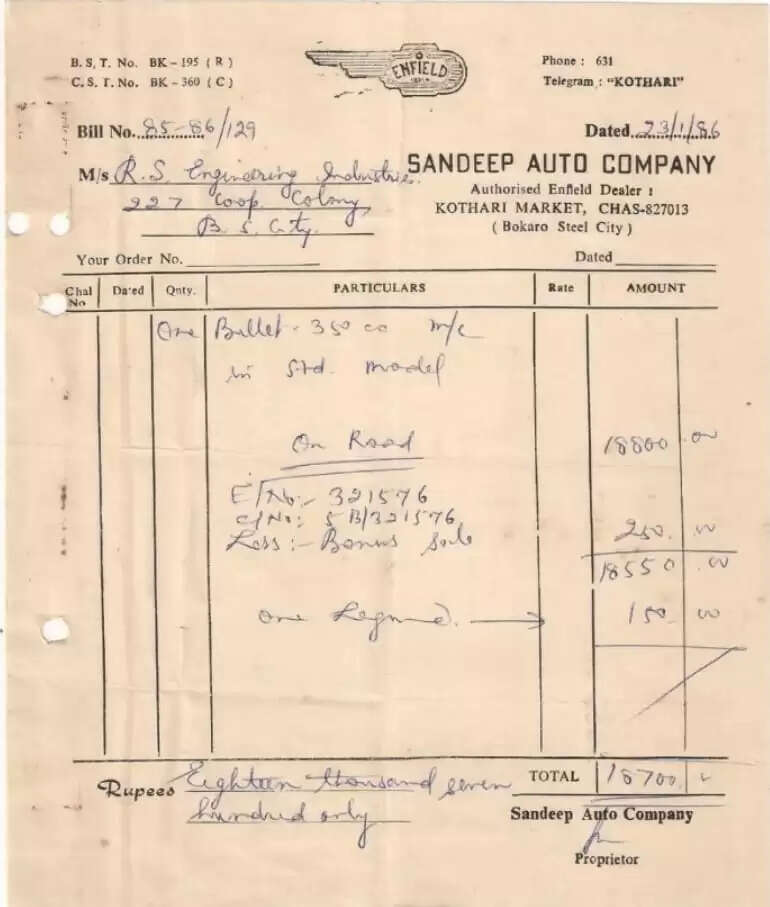 B. S. T. No. BK – 195 ( R )
C. S. T. No. BK – 360 ( C )
ENFIELD
Phone : 631
Telegram : "KOTHARI"
Bill No. 85-86/129
Dated 23/1/86
M/s R.S. Engineering Industries.
227 Coop. Colony,
B. S. City.
SANDEEP AUTO COMPANY
Authorised Enfield Dealer :
KOTHARI MARKET, CHAS-827013
( Bokaro Steel City )
Your Order No.
Dated
Chal No Dated Qnty. PARTICULARS Rate AMOUNT
One Bullet - 350 cc m/c
in Std. model
On Road 18800 .00
E/No:- 321576
C/No:- 5B/321576
Less :- Bonus Sale 250. 00
18550 .00
one Legguard. 150. 00
Rupees Eighteen thousand seven
hundred only
TOTAL 18700.
Sandeep Auto Company
Proprietor